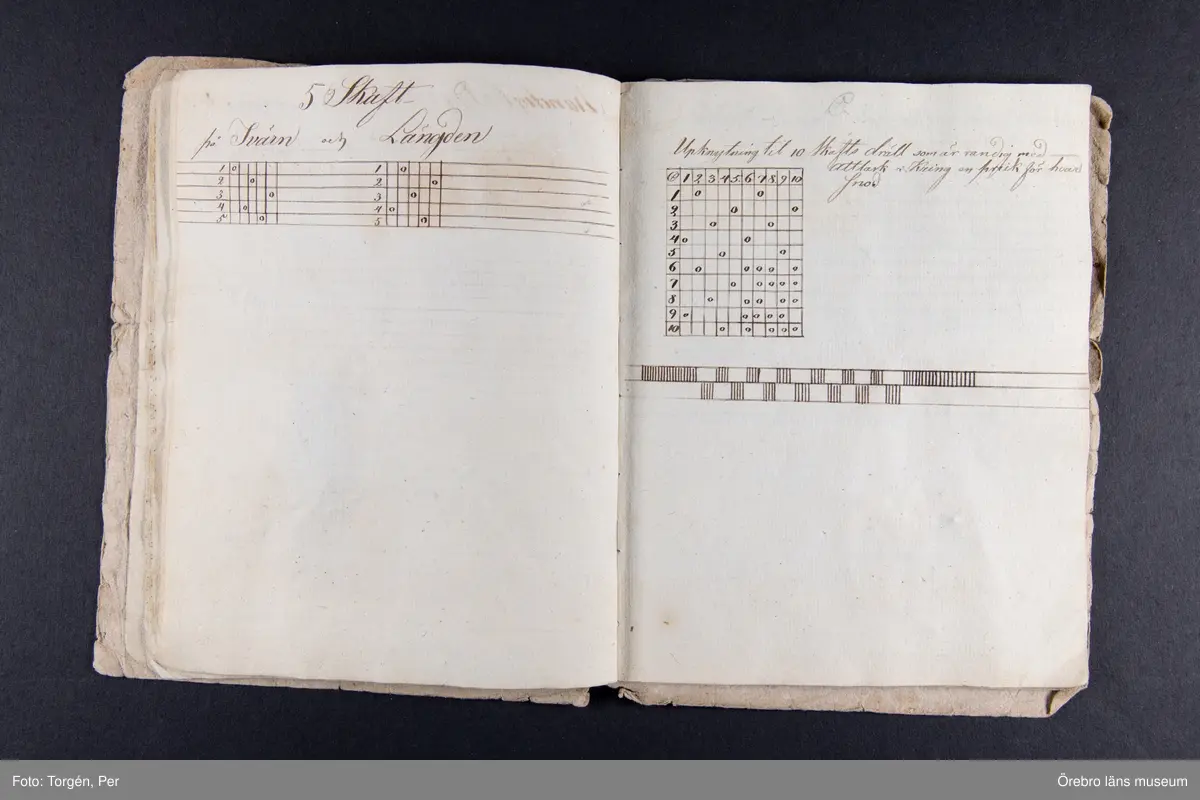 5 Skaft
på Tvärn och Längden
1 o
2 o
3 o
4 o
5 o
1 o
2 o
3 o
4 o
5 o
Upknytning til 10 Skafts dräll som är randig med
för hvar
1 2 3 4 5 6 7 8 9 10
1 o o
2 o o
3 o o
4 o o
5 o o
6 o o o o o
7 o o o o o
8 o o o o o
9 o o o o o
10 o o o o o
Foto: Torgén, Per
Örebro läns museum